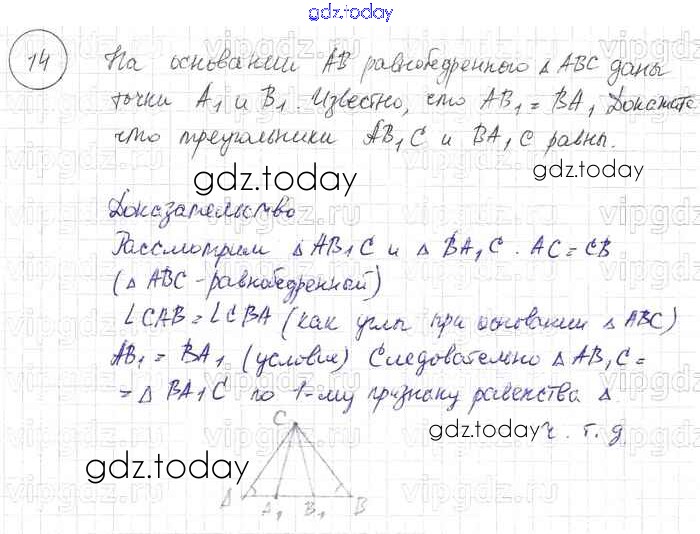 gdz.today
14 На основании AB равнобедренного △ ABC даны
точки A₁ и B₁. Известно, что AB₁ = BA₁ Докажите
что треугольники AB₁C и BA₁C равны.
gdz.today
gdz.today
Доказательство
Рассмотрим △ AB₁C и △ BA₁C. AC = CB
(△ ABC - равнобедренный)
∠CAB = ∠CBA (как углы при основании △ ABC)
AB₁ = BA₁ (условия) Следовательно △ AB₁C =
= △ BA₁C по 1-му признаку равенства △.
ч. т. д.
gdz.today
gdz.today
C
A A₁ B₁ B